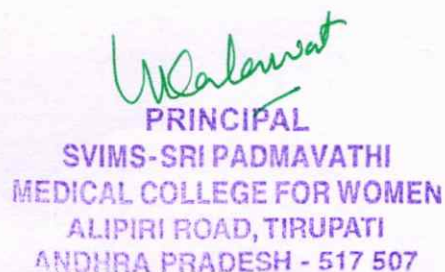 PRINCIPAL
SVIMS-SRI PADMAVATHI
MEDICAL COLLEGE FOR WOMEN
ALIPIRI ROAD, TIRUPATI
ANDHRA PRADESH - 517 507